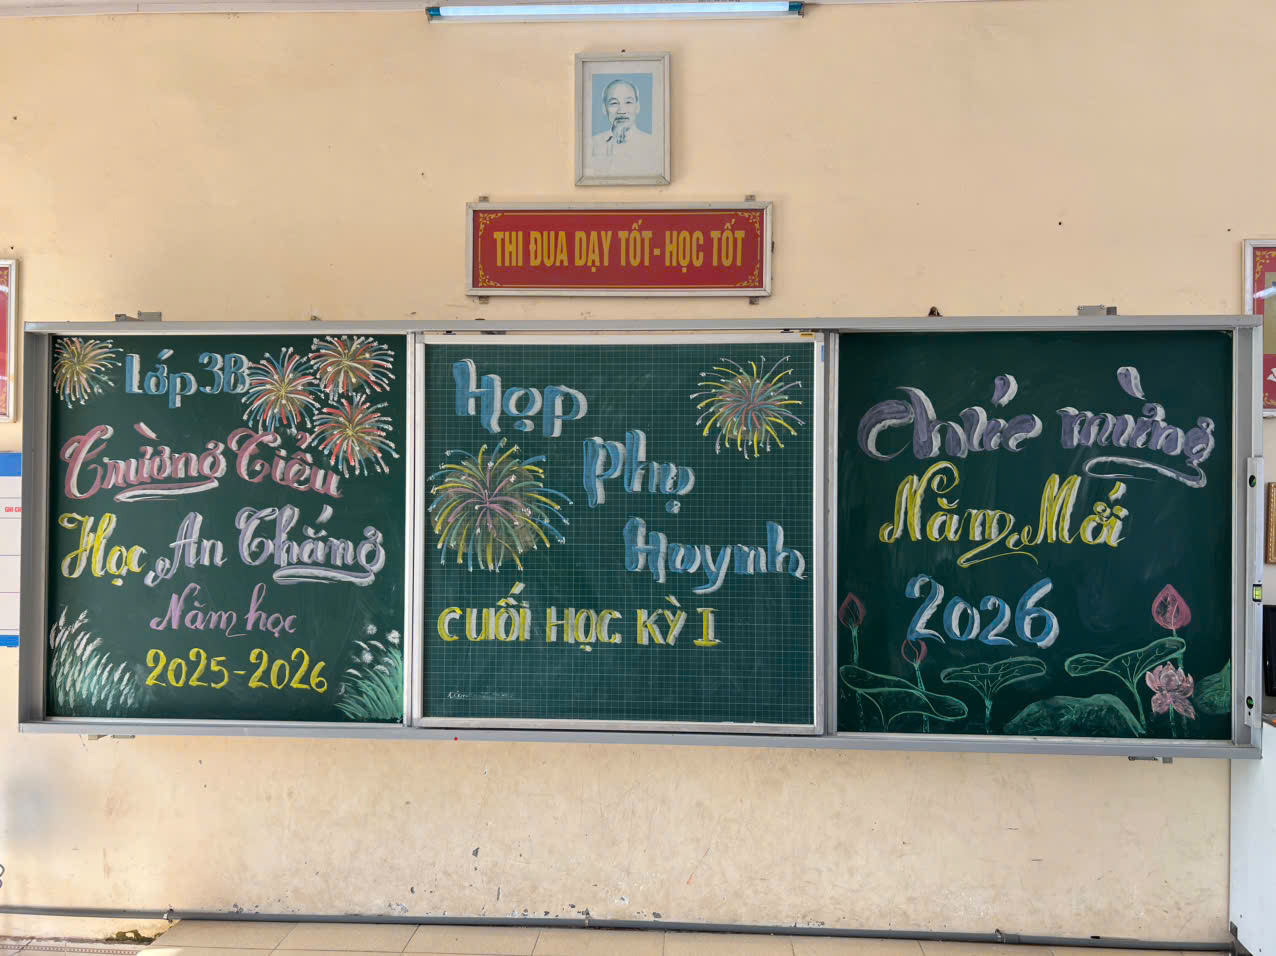 THI ĐUA DẠY TỐT - HỌC TỐT
Lớp 3B
Trường Tiểu
Học An Thắng
Năm học
2025-2026
Họp
phụ
Huynh
CUỐI HỌC KỲ I
Chúc mừng
Năm Mới
2026
GHI CH